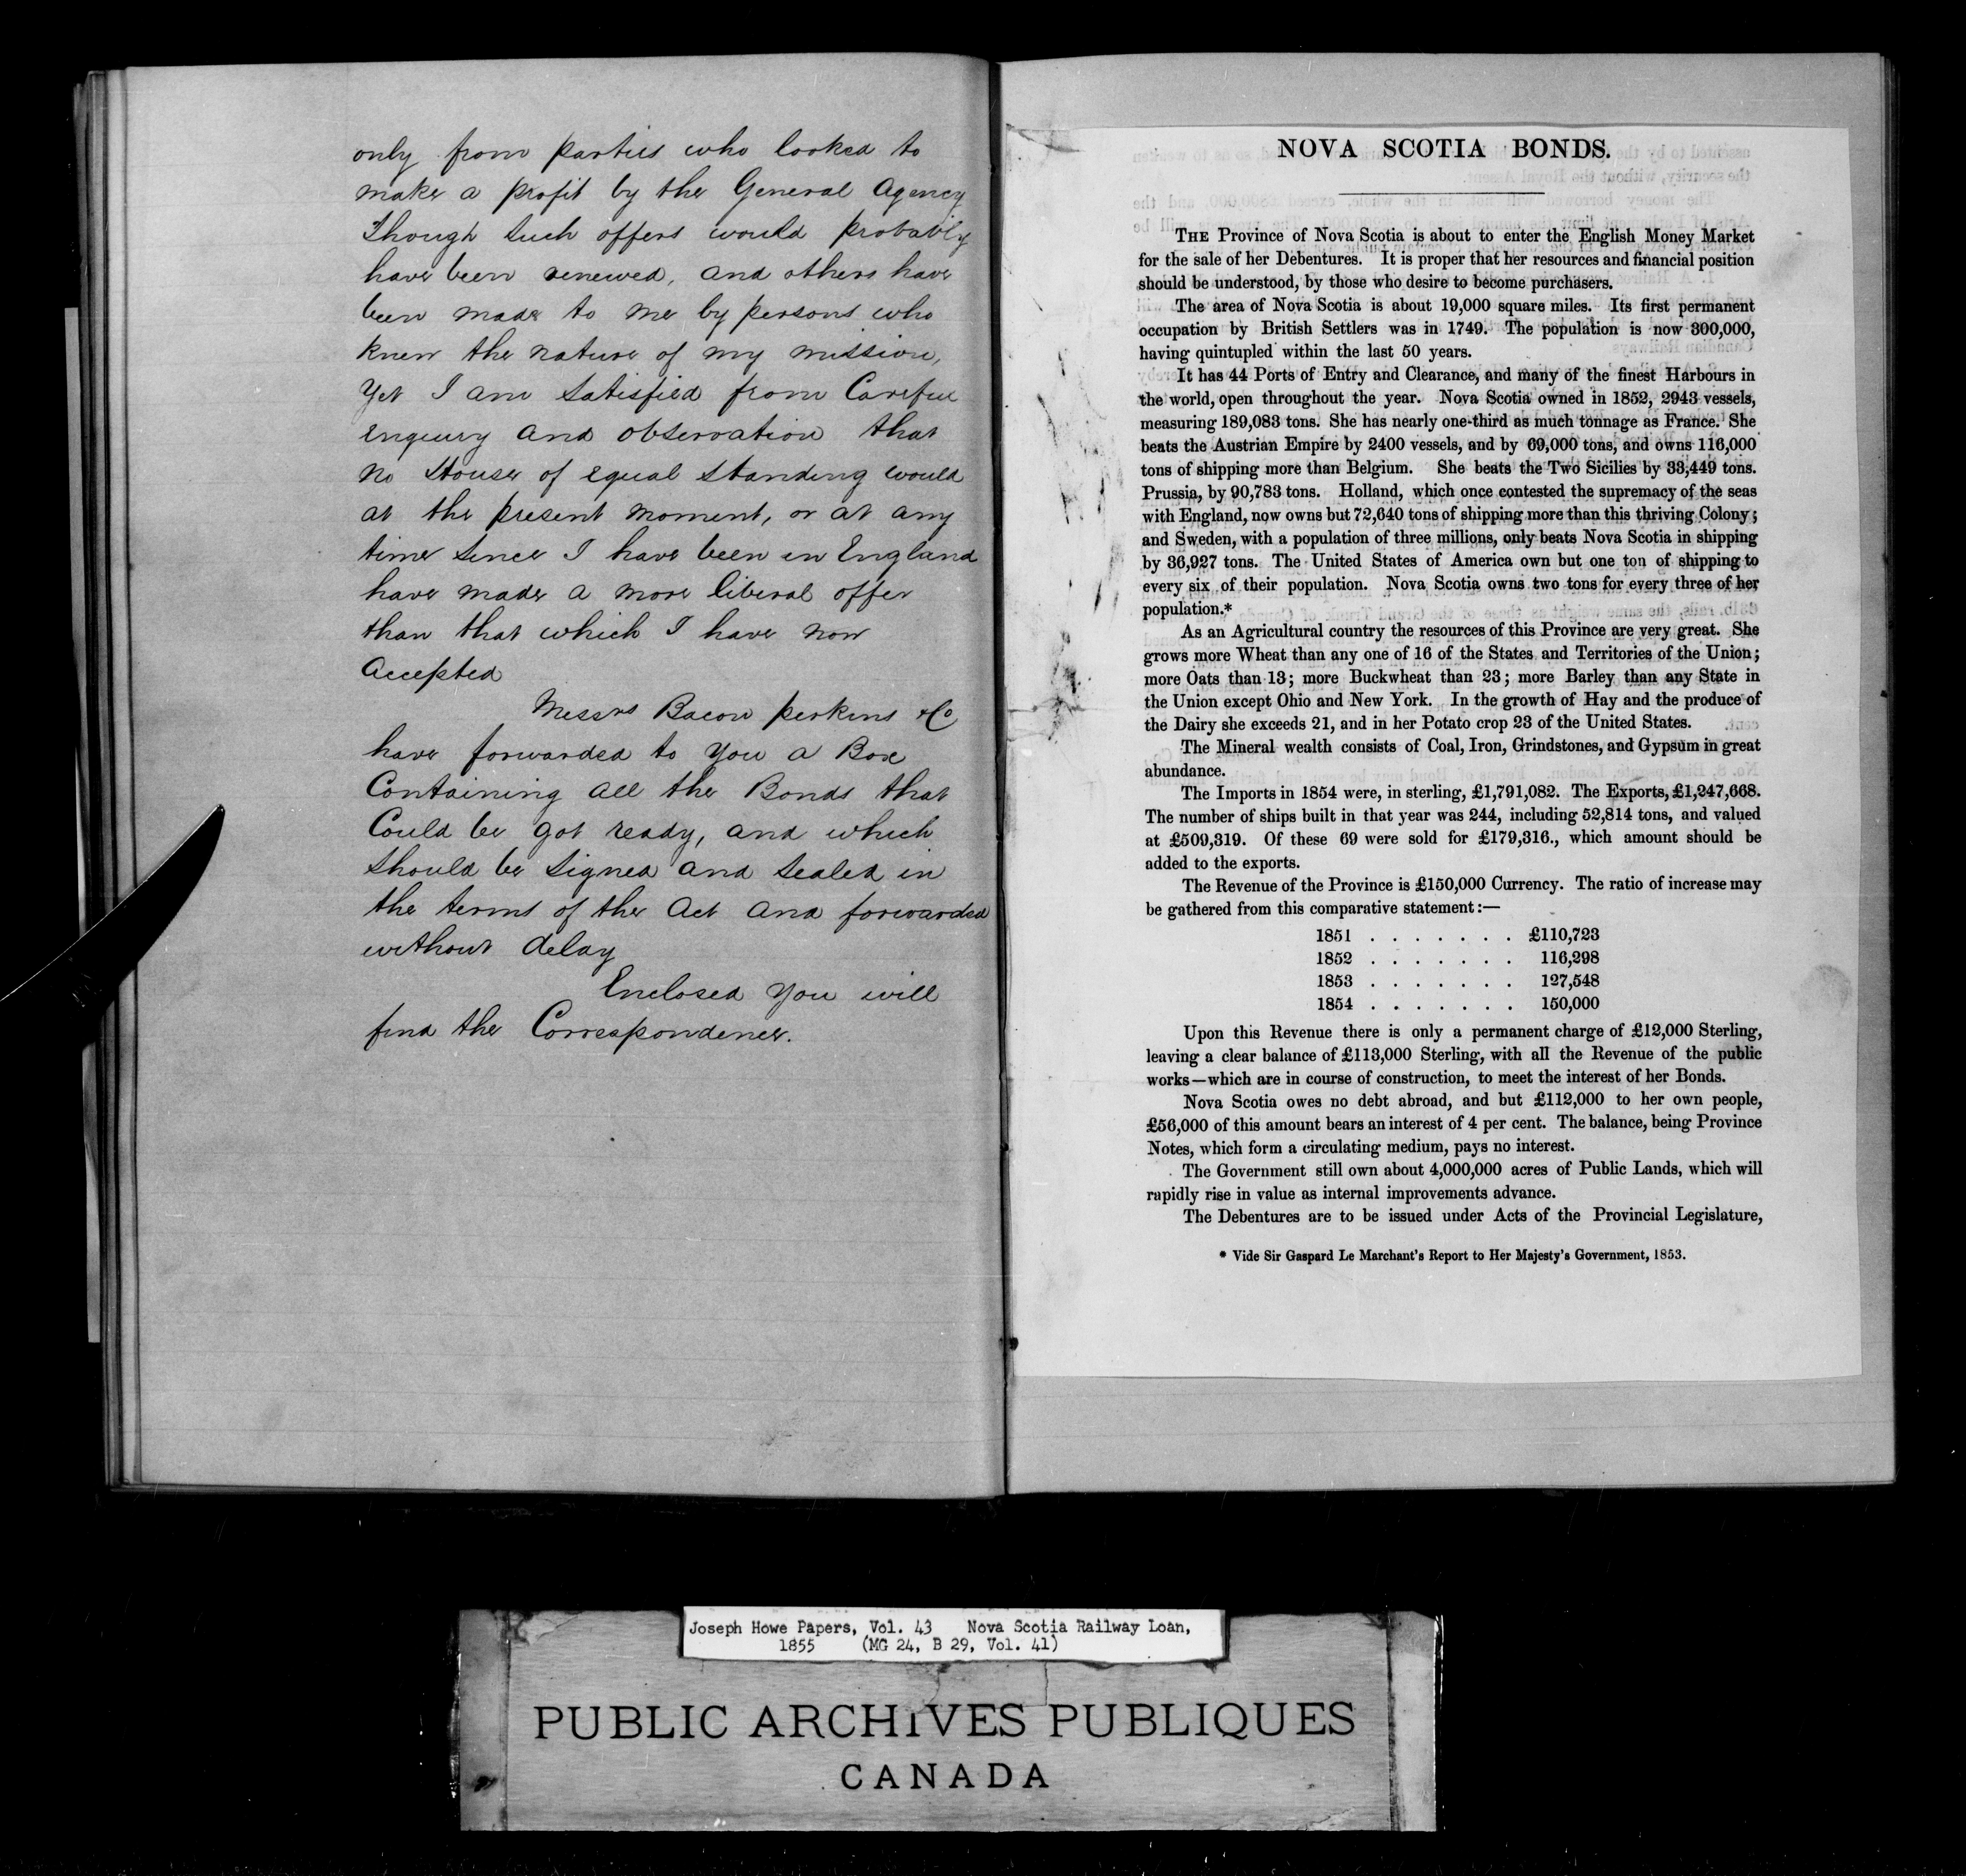 only from parties who looked to
make a profit by the General Agency
Though such offers would probably
have been renewed, and others have
been made to me by persons who
knew the nature of my mission,
yet I am satisfied from Careful
enquiry and observation that
no House of equal standing would
at the present moment, or at any
time since I have been in England
have made a more liberal offer
than that which I have now
accepted
Messrs Bacon Perkins & Co
have forwarded to you a Box
Containing all the Bonds that
Could be got ready, and which
should be signed and sealed in
the terms of the Act and forwarded
without delay
Enclosed you will
find the Correspondence.
NOVA SCOTIA BONDS.
THE Province of Nova Scotia is about to enter the English Money Market
for the sale of her Debentures. It is proper that her resources and financial position
should be understood, by those who desire to become purchasers.
The area of Nova Scotia is about 19,000 square miles. Its first permanent
occupation by British Settlers was in 1749. The population is now 300,000,
having quintupled within the last 50 years.
It has 44 Ports of Entry and Clearance, and many of the finest Harbours in
the world, open throughout the year. Nova Scotia owned in 1852, 2943 vessels,
measuring 189,083 tons. She has nearly one-third as much tonnage as France. She
beats the Austrian Empire by 2400 vessels, and by 69,000 tons, and owns 116,000
tons of shipping more than Belgium. She beats the Two Sicilies by 33,449 tons.
Prussia, by 90,783 tons. Holland, which once contested the supremacy of the seas
with England, now owns but 72,640 tons of shipping more than this thriving Colony;
and Sweden, with a population of three millions, only beats Nova Scotia in shipping
by 36,927 tons. The United States of America own but one ton of shipping to
every six of their population. Nova Scotia owns two tons for every three of her
population.*
As an Agricultural country the resources of this Province are very great. She
grows more Wheat than any one of 16 of the States and Territories of the Union;
more Oats than 13; more Buckwheat than 23; more Barley than any State in
the Union except Ohio and New York. In the growth of Hay and the produce of
the Dairy she exceeds 21, and in her Potato crop 23 of the United States.
The Mineral wealth consists of Coal, Iron, Grindstones, and Gypsum in great
abundance.
The Imports in 1854 were, in sterling, £1,791,082. The Exports, £1,247,668.
The number of ships built in that year was 244, including 52,814 tons, and valued
at £509,319. Of these 69 were sold for £179,316., which amount should be
added to the exports.
The Revenue of the Province is £150,000 Currency. The ratio of increase may
be gathered from this comparative statement:—
1851 . . . . . . . £110,723
1852 . . . . . . . 116,298
1853 . . . . . . . 127,548
1854 . . . . . . . 150,000
Upon this Revenue there is only a permanent charge of £12,000 Sterling,
leaving a clear balance of £113,000 Sterling, with all the Revenue of the public
works—which are in course of construction, to meet the interest of her Bonds.
Nova Scotia owes no debt abroad, and but £112,000 to her own people,
£56,000 of this amount bears an interest of 4 per cent. The balance, being Province
Notes, which form a circulating medium, pays no interest.
The Government still own about 4,000,000 acres of Public Lands, which will
rapidly rise in value as internal improvements advance.
The Debentures are to be issued under Acts of the Provincial Legislature,
* Vide Sir Gaspard Le Marchant's Report to Her Majesty's Government, 1853.
Joseph Howe Papers, Vol. 43 Nova Scotia Railway Loan,
1855 (MG 24, B 29, Vol. 41)
PUBLIC ARCHIVES PUBLIQUES
CANADA